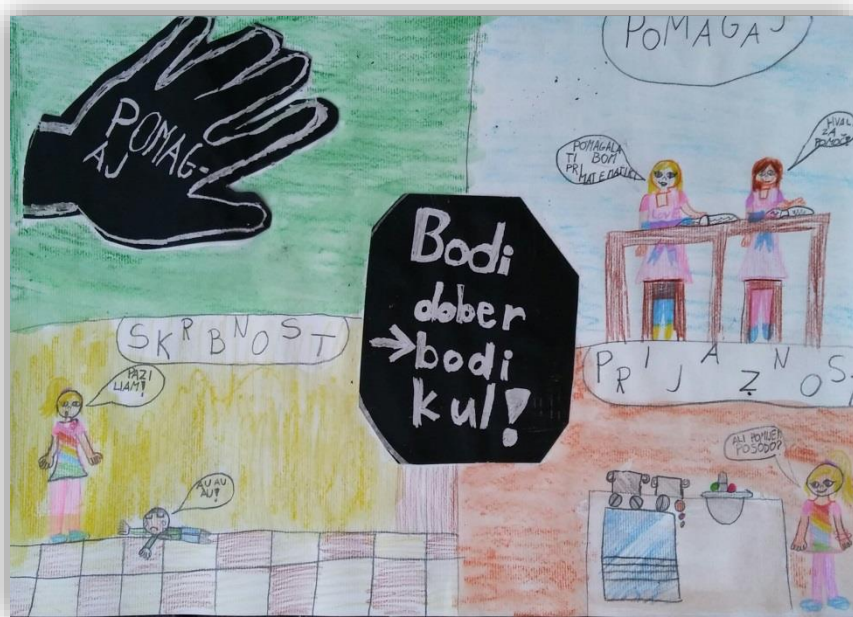 POMAG-
AJ
POMAGAJ
POMAGALA
TI BOM
PRI
MATEMATIKI
HVAL
ZA
POMOČ!
Bodi
dober
→bodi
kul!
SKRBNOST
PRIJAZNOST
PAZI
LIAM!
AU AU
AU!
ALI POMIJEM
POSODO?